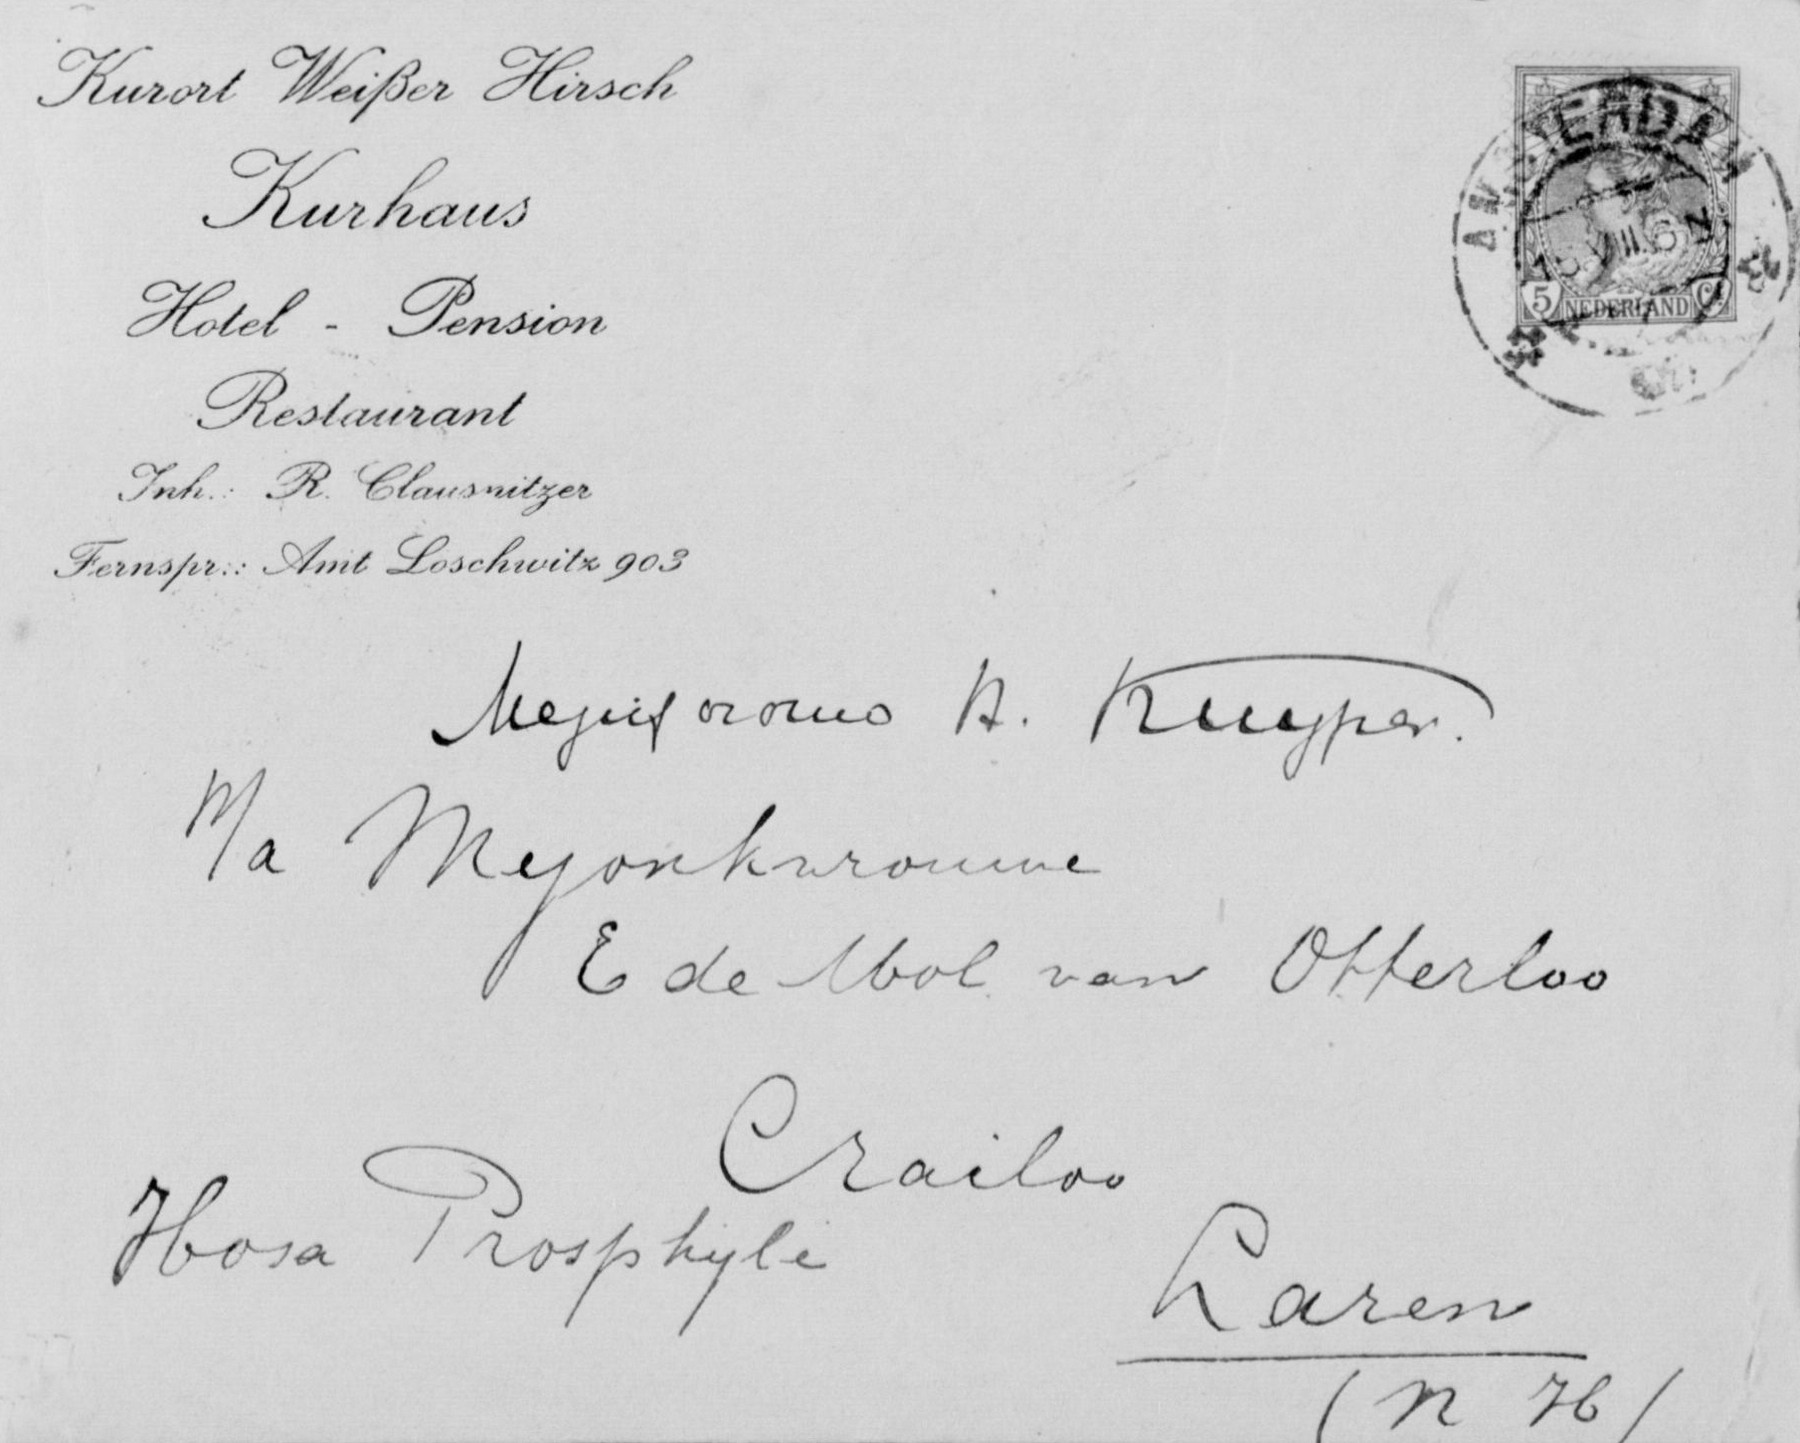 Kurort Weißer Hirsch
Kurhaus
Hotel - Pension
Restaurant
Inh.: R. Clausnitzer
Fernspr.: Amt Loschwitz 903
AMSTERDAM
5 NEDERLAND Ct
Kuyper.
P/a Mejonkvrouwe
E de Mol van Otterloo
Crailoo
Hosa Prosphyli
Laren
(N H)